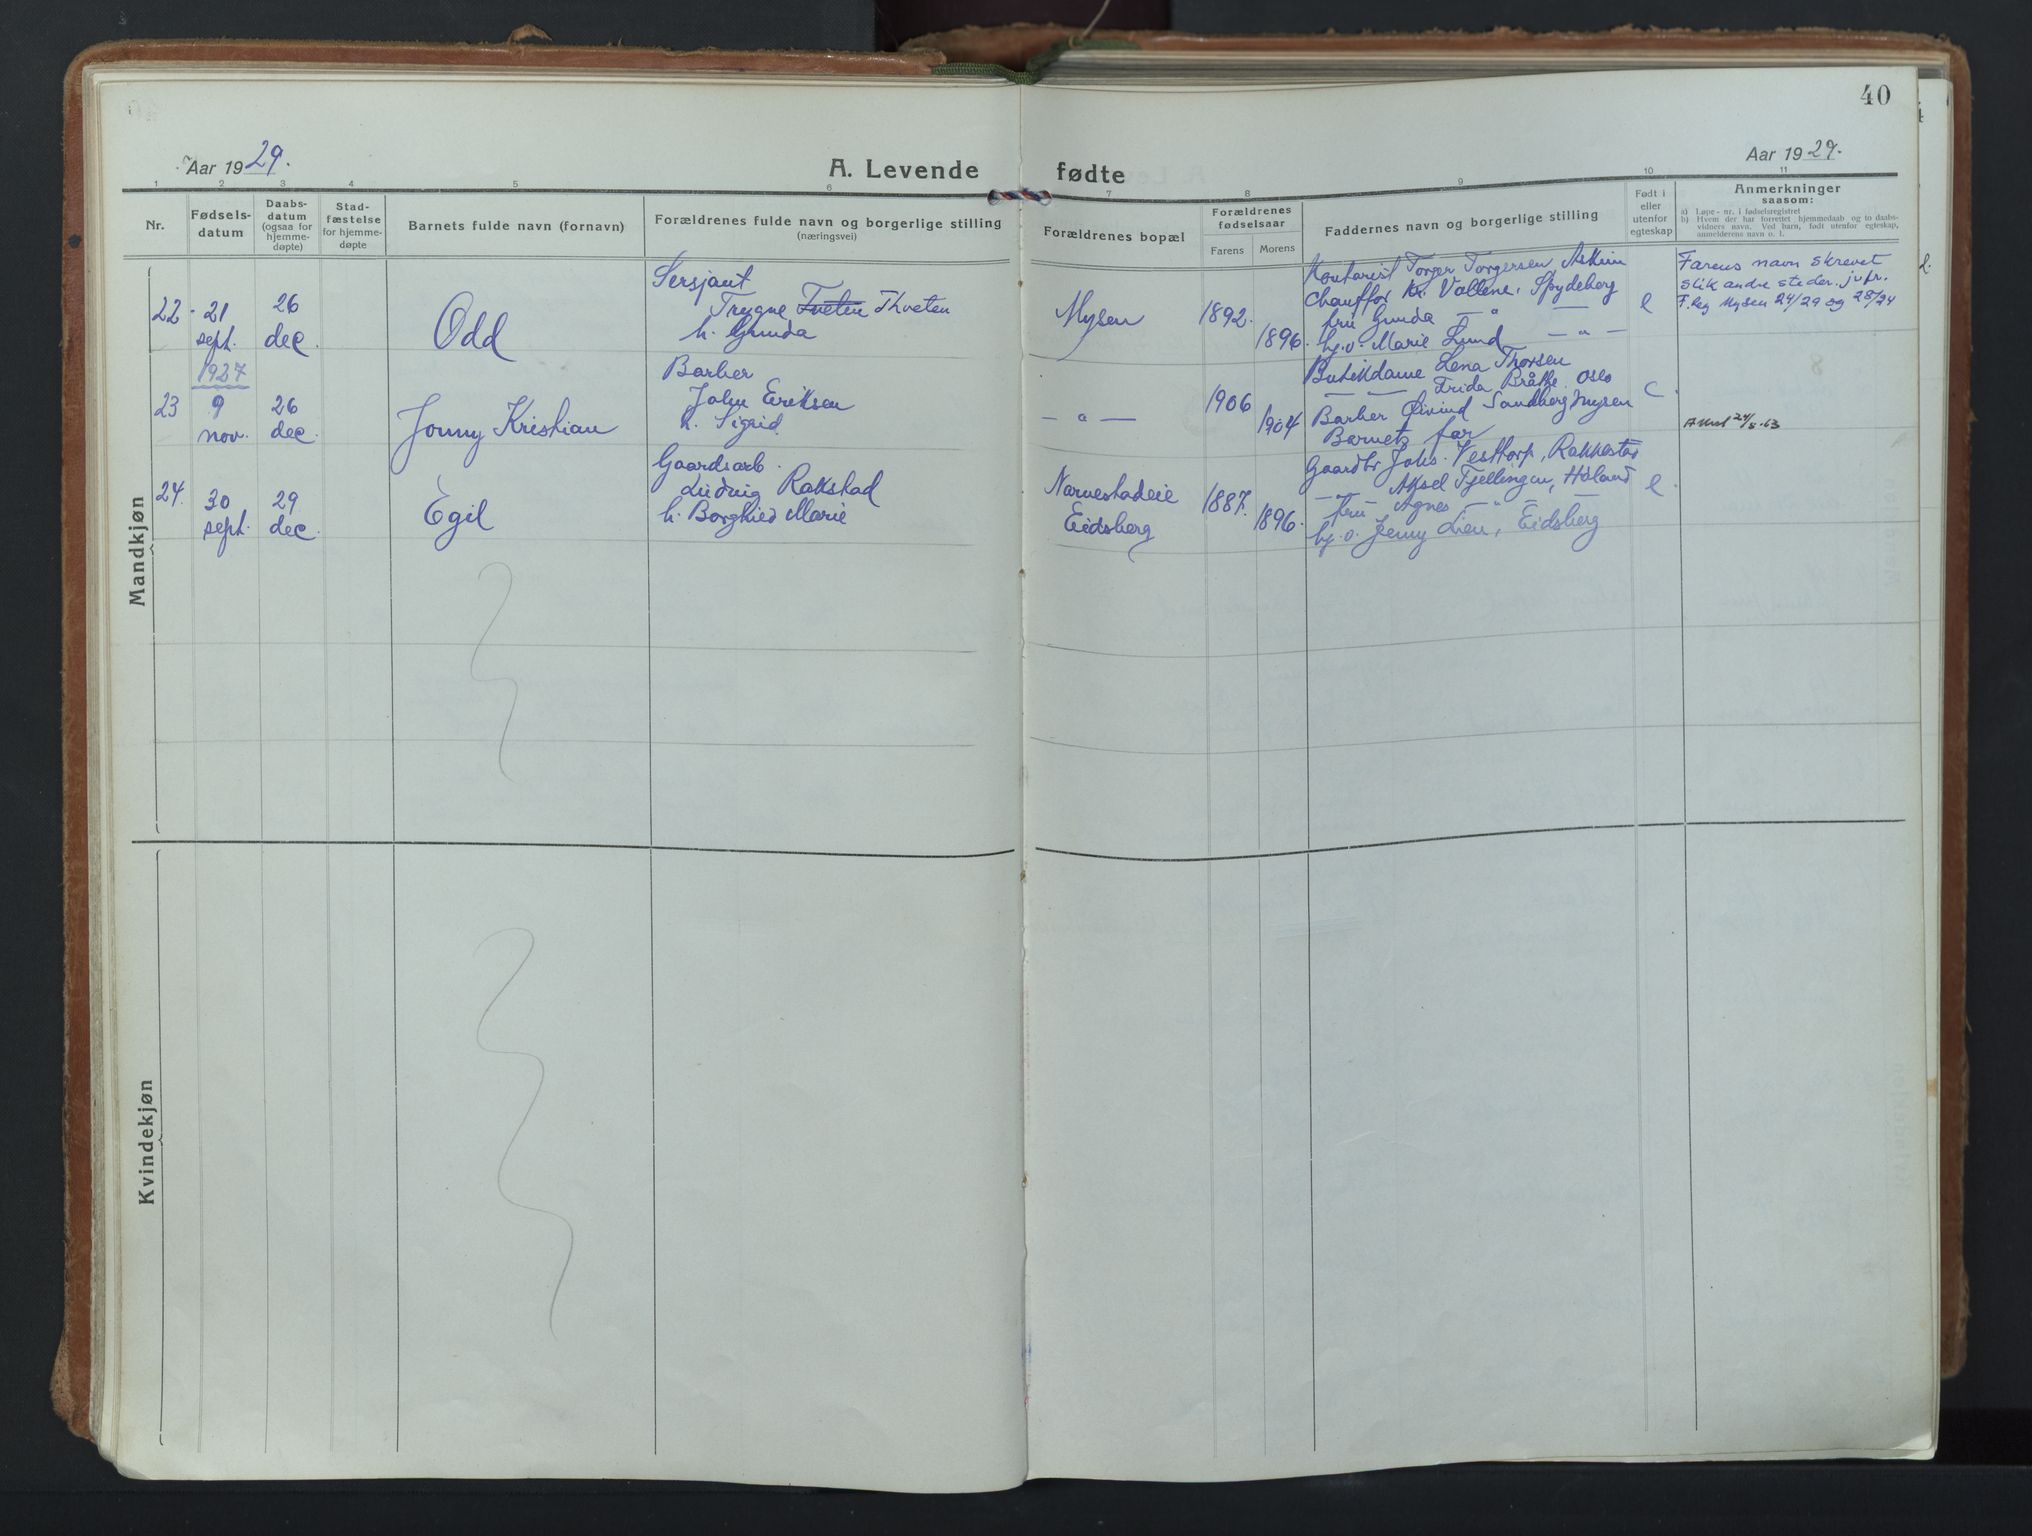 40
Aar 1929.
A. Levende fødte
Aar 1929.
1 2 3 4 5 6 7 8 9 10 11
Nr.
Fødsels-
datum
Daabs-
datum
(ogsaa for
hjemme-
døpte)
Stad-
fæstelse
for hjemme-
døpte
Barnets fulde navn (fornavn)
Forældrenes fulde navn og borgerlige stilling
(næringsvei)
Forældrenes bopæl
Forældrenes
fødselsaar
Farens Morens
Faddernes navn og borgerlige stilling
Født i
eller
utenfor
egteskap
Anmerkninger
saasom:
a) Løpe-nr. i fødselsregistret
b) Hvem der har forrettet hjemmedaab og to daabs-
vidners navn. Ved barn, født utenfor egteskap,
anmelderens navn o. l.
Mandkjøn
22
21
sept.
26
dec.
Odd
Sersjant
Trygve Tveten Thveten
h. Gunda
Mysen
1892.
1896.
Kontorist Torger Torgersen Askim
Chauffør Kr. Vollene, Spydeberg
fru Gunda — " —
hj.v. Marie Lund — " —
e
Farens navn skrevet
slik andre steder. jvfr.
F. reg Mysen 24/29 og 28/24
23
1927
9
nov.
26
dec.
Jonny Kristian
Barber
John Eriksen
h. Sigrid
— " —
1906
1904
Butikdame Lena Thorsen
— — Frida Bråthe. Oslo
Barber Øivind Sandberg Mysen
Barnets far
e
Attest 24/8.63
24.
30
sept.
29
dec.
Egil
Gaardsarb.
Ludvig Rakstad
h. Borghild Marie
Narvestadeie
Eidsberg
1887.
1896.
Gaardbr Johs. Vesttorp, Rakkestad
— " — Aksel Fjellingen, Høland
fru Agnes — " —
hj.v. Jenny Lien, Eidsberg
e.
Kvindekjøn